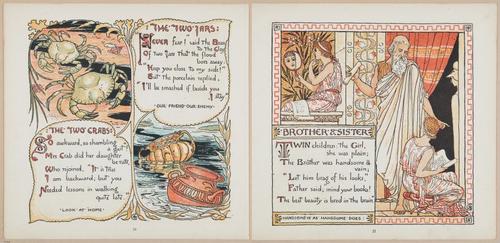 THE TWO JARS:
NEVER fear! said the Brass
to the Clay
Of two Jars that the flood
bore away
"Keep you close to my side!"
But the porcelain replied,
"I'll be smashed if beside you
I stay
"OUR FRIEND OUR ENEMY"
THE TWO CRABS:
So awkward, so shambling
a gait
Mrs Crab did her daughter
berate,
Who rejoined, "It is true
I am backward; but you
Needed lessons in walking
quite late."
"LOOK AT HOME"
BROTHER & SISTER
TWIN children: the Girl,
she was plain;
The Brother was handsome &
vain;
"Let him brag of his looks,"
Father said; "mind your books!
The best beauty is bred in the brain."
HANDSOME IS AS HANDSOME DOES